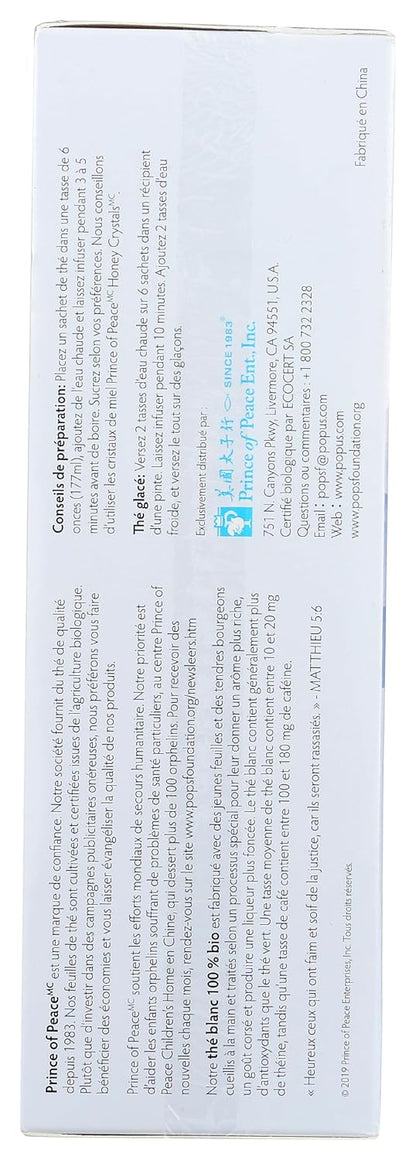 Prince of Peace MC est une marque de confiance. Notre société fournit du thé de qualité
depuis 1983. Nos feuilles de thé sont cultivées et certifiées issues de l'agriculture biologique.
Plutôt que d'investir dans des campagnes publicitaires onéreuses, nous préférons vous faire
bénéficier des économies et vous laisser évangéliser la qualité de nos produits.
Prince of Peace MC soutient les efforts mondiaux de secours humanitaire. Notre priorité est
d'aider les enfants orphelins souffrant de problèmes de santé particuliers, au centre Prince of
Peace Children's Home en Chine, qui dessert plus de 100 orphelins. Pour recevoir des
nouvelles chaque mois, rendez-vous sur le site www.popsfoundation.org/newsleers.htm
Notre thé blanc 100 % bio est fabriqué avec des jeunes feuilles et des tendres bourgeons
cueillis à la main et traités selon un processus spécial pour leur donner un arôme plus riche,
un goût corsé et produire une liqueur plus foncée. Le thé blanc contient généralement plus
d'antioxydants que le thé vert. Une tasse moyenne de thé blanc contient entre 10 et 20 mg
de théine, tandis qu'une tasse de café contient entre 100 et 180 mg de caféine.
« Heureux ceux qui ont faim et soif de la justice, car ils seront rassasiés. » - MATTHIEU 5.6
© 2019 Prince of Peace Enterprises, Inc. Tous droits réservés.
Conseils de préparation: Placez un sachet de thé dans une tasse de 6
onces (177ml), ajoutez de l'eau chaude et laissez infuser pendant 3 à 5
minutes avant de boire. Sucrez selon vos préférences. Nous conseillons
d'utiliser les cristaux de miel Prince of Peace MC Honey Crystals MC.
Thé glacé: Versez 2 tasses d'eau chaude sur 6 sachets dans un récipient
d'une pinte. Laissez infuser pendant 10 minutes. Ajoutez 2 tasses d'eau
froide, et versez le tout sur des glaçons.
Exclusivement distribué par :
美國太子行 SINCE 1983®
Prince of Peace Ent., Inc.
751 N. Canyons Pkwy, Livermore, CA 94551, U.S.A.
Certifié biologique par ECOCERT SA
Questions ou commentaires : +1 800 732 2328
Email : popsf@popus.com
Web : www.popus.com
www.popsfoundation.org
Fabriqué en China